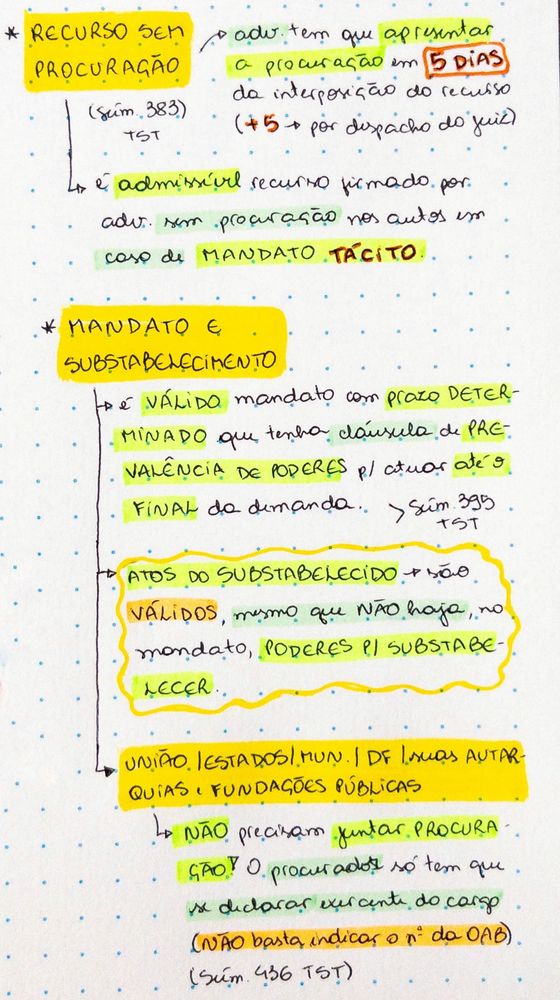 * RECURSO SEM
PROCURAÇÃO
(Súm. 383)
TST
→ adv. tem que apresentar
a procuração em 5 DIAS
da interposição do recurso
(+5 → por despacho do juiz)
→ é admissível recurso firmado por
adv. sem procuração nos autos em
caso de MANDATO TÁCITO.
* MANDATO E
SUBSTABELECIMENTO
→ é VÁLIDO mandato com prazo DETER-
MINADO que tenha cláusula de PRE-
VALÊNCIA DE PODERES p/ atuar até o
FINAL da demanda. > Súm. 395
TST
→ ATOS DO SUBSTABELECIDO → são
VÁLIDOS, mesmo que NÃO haja, no
mandato, PODERES P/ SUBSTABE-
LECER.
→ UNIÃO /ESTADOS/ MUN. / DF / suas AUTAR-
QUIAS e FUNDAÇÕES PÚBLICAS
↳ NÃO precisam juntar PROCURA-
ÇÃO! O procurador só tem que
se declarar exercente do cargo
(NÃO basta indicar o nº da OAB)
(Súm. 436 TST)